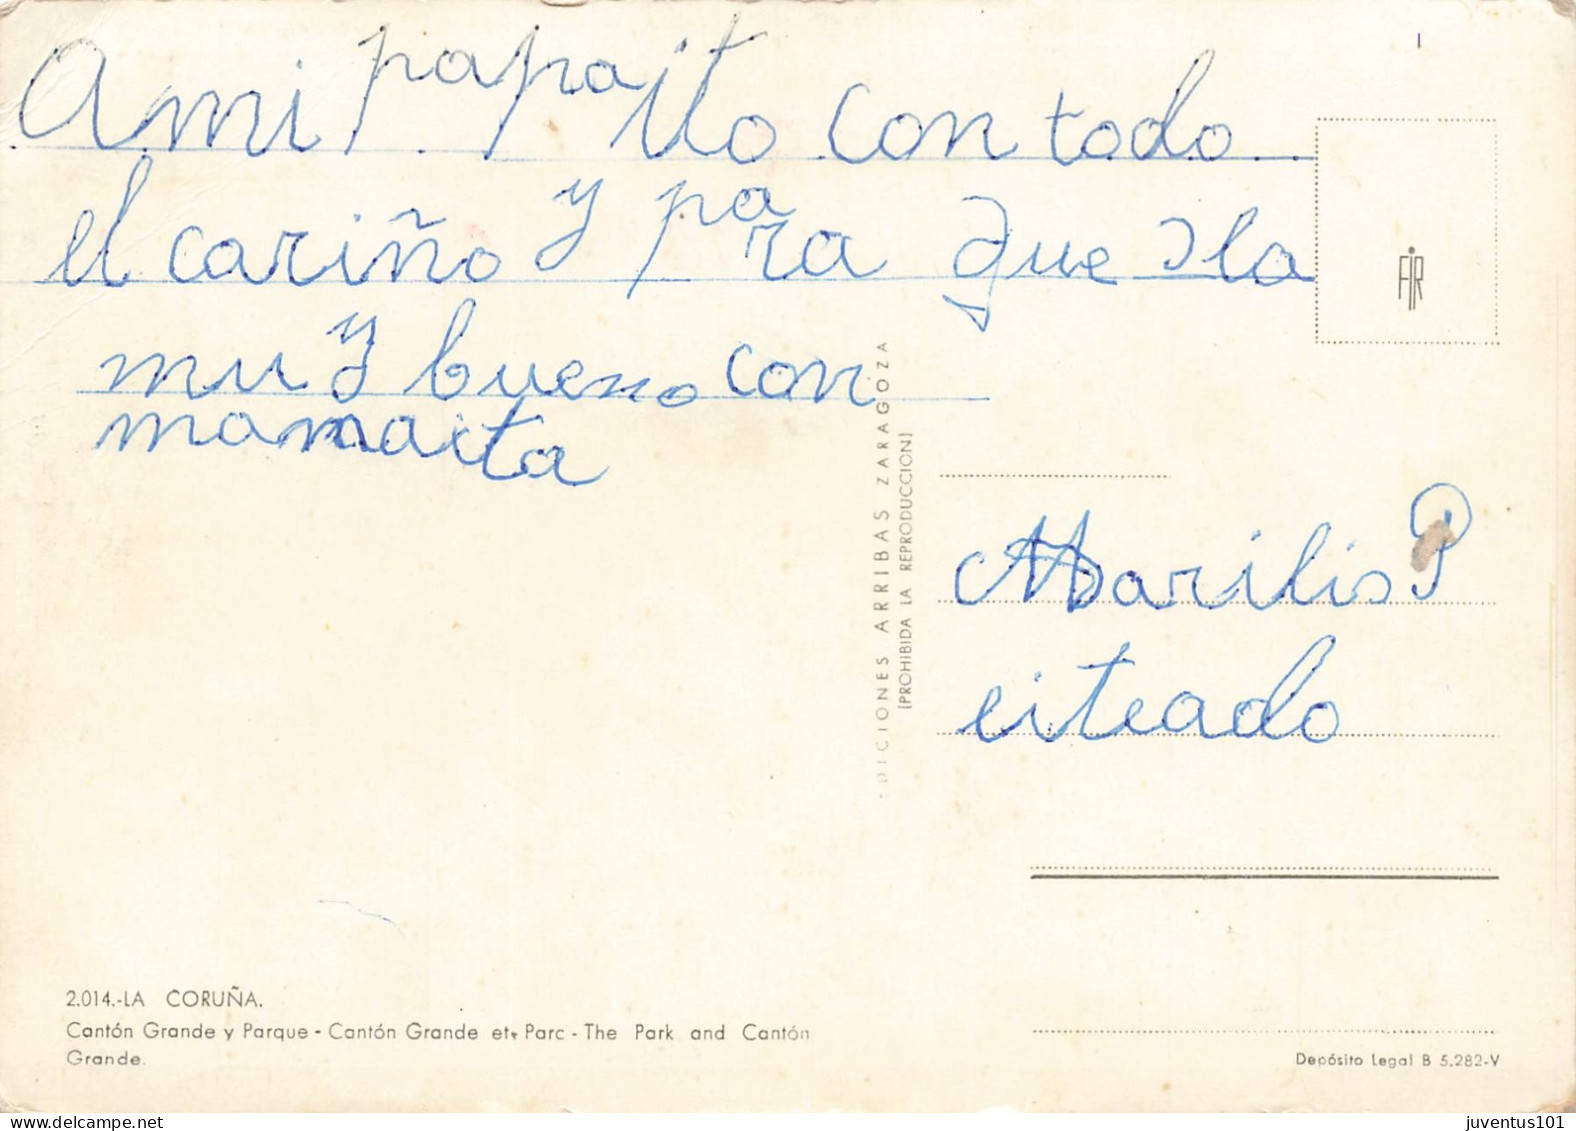 A mi papaito con todo
el cariño y para que sla
muy bueno con
mamaita
Marilis P
eiteado
FIR
EDICIONES ARRIBAS ZARAGOZA
(PROHIBIDA LA REPRODUCCION)
2.014.-LA CORUÑA.
Cantón Grande y Parque - Cantón Grande et Parc - The Park and Cantón
Grande.
Depósito Legal B 5.282-V
juventus101